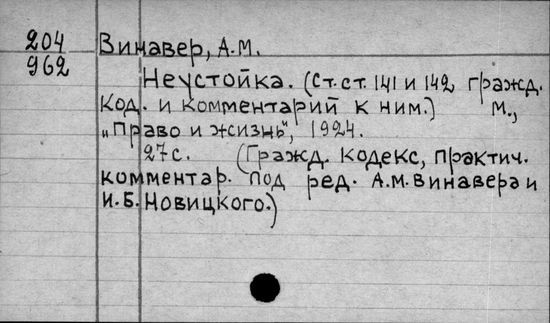 204 Винавер, А.М.
962
Неустойка. (Ст.ст. 141 и 142 гражд.
код. и комментарий к ним.) М.,
„Право и жизнь", 1924.
27 с. (Гражд. кодекс, практич.
комментар. под ред. А.М. Винавера и
И.Б. Новицкого.)